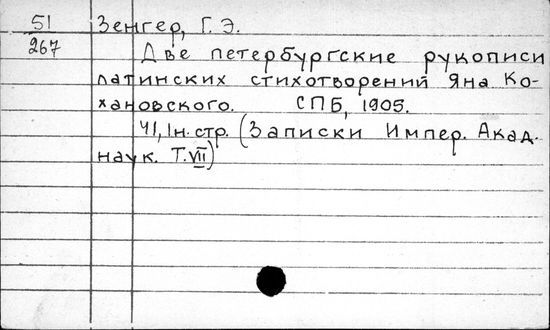 51 Зенгер, Г. Э.
267 Две петербургские рукописи
латинских стихотворений Яна Ко-
хановского. СПБ, 1905.
41, Iн. стр. (Записки Импер. Акад.
наук. Т. VII)